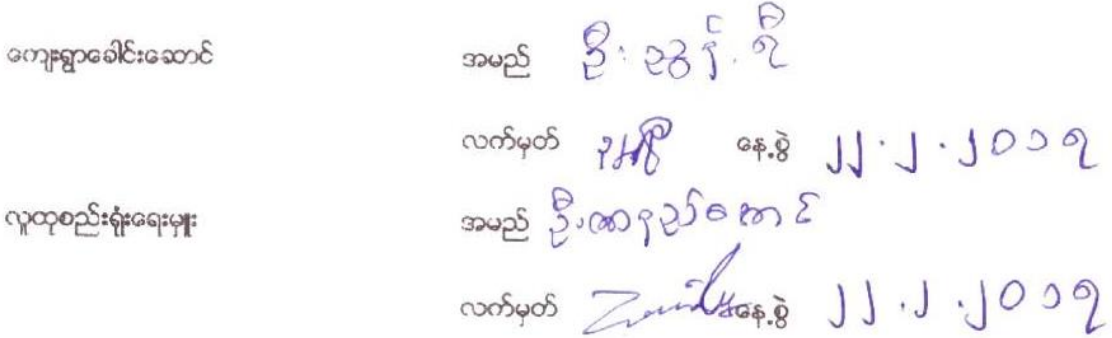 ကျေးရွာခေါင်းဆောင် အမည် ဦး ညွန့် ရီ
လက်မှတ် နေ့စွဲ ၂၂.၂.၂၀၁၇
လူထုစည်းရုံးရေးမှူး အမည် ဦး
လက်မှတ် နေ့စွဲ ၂၂.၂.၂၀၁၇